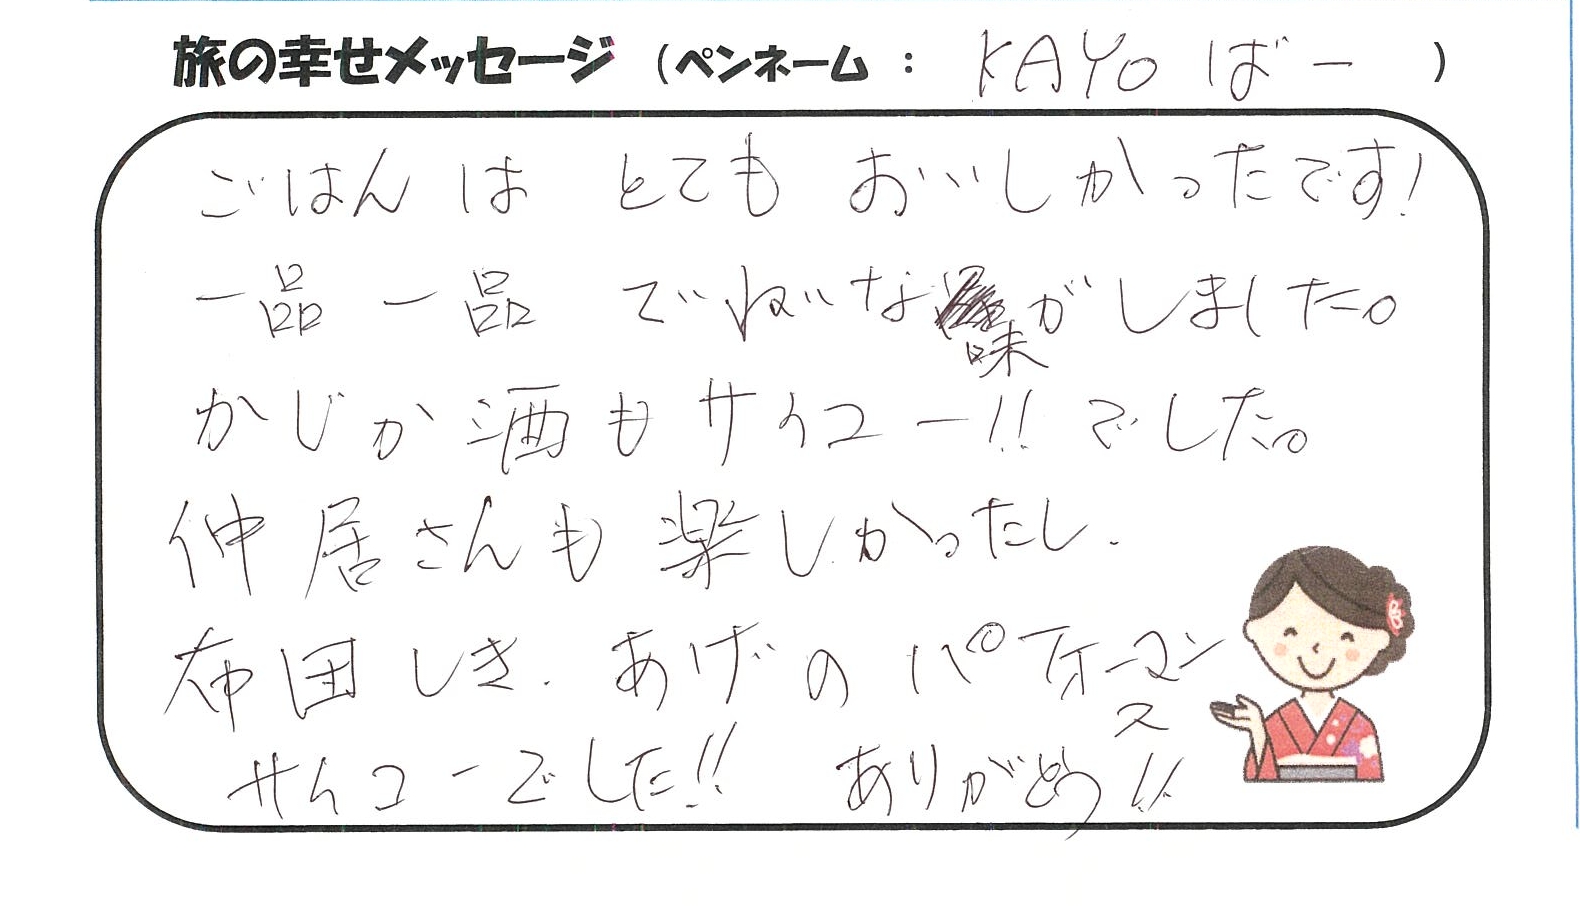 旅の幸せメッセージ（ペンネーム： KAYOばー ）
ごはんは とても おいしかったです!
一品一品 でいねいな味がしました。
かじか酒もサイコー!!でした。
仲居さんも楽しかったし.
布団しき.あげのパフォーマンス
サイコーでした!! ありがどう!!